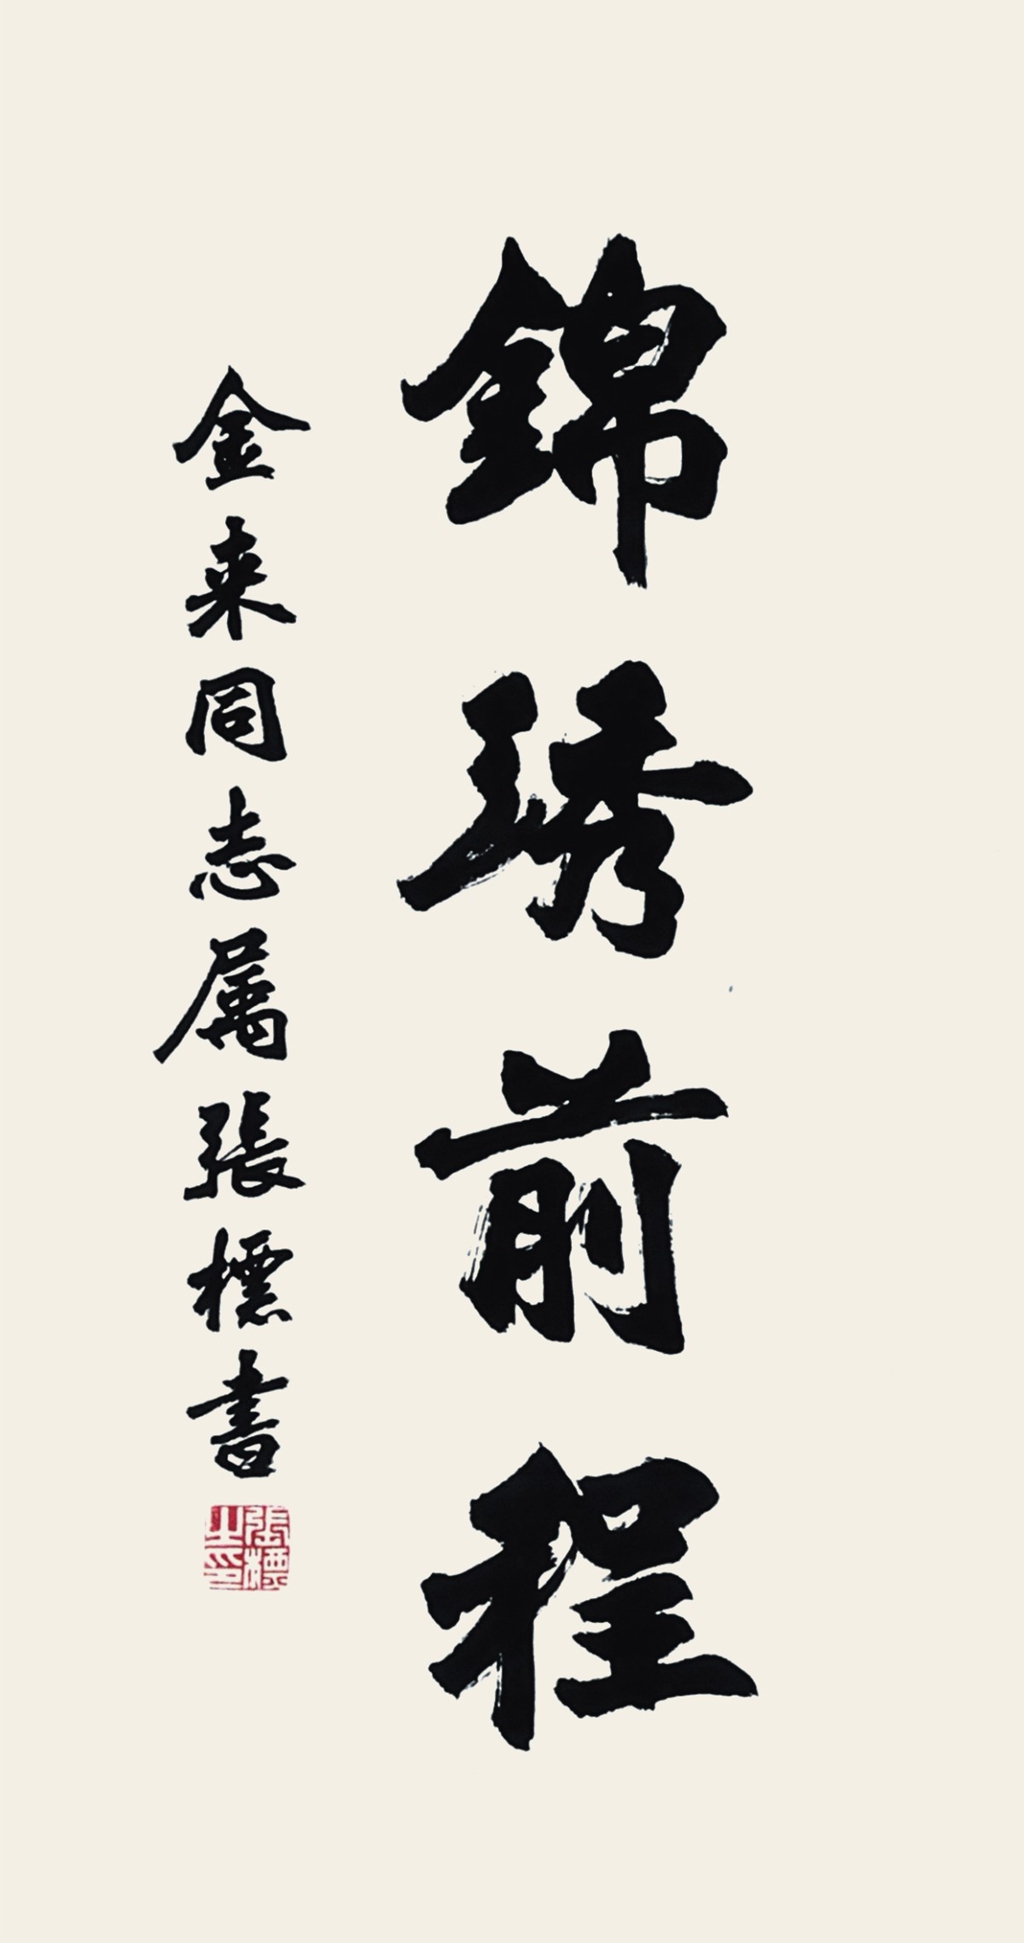 錦琇前程
金来同志属張標書
張標之印